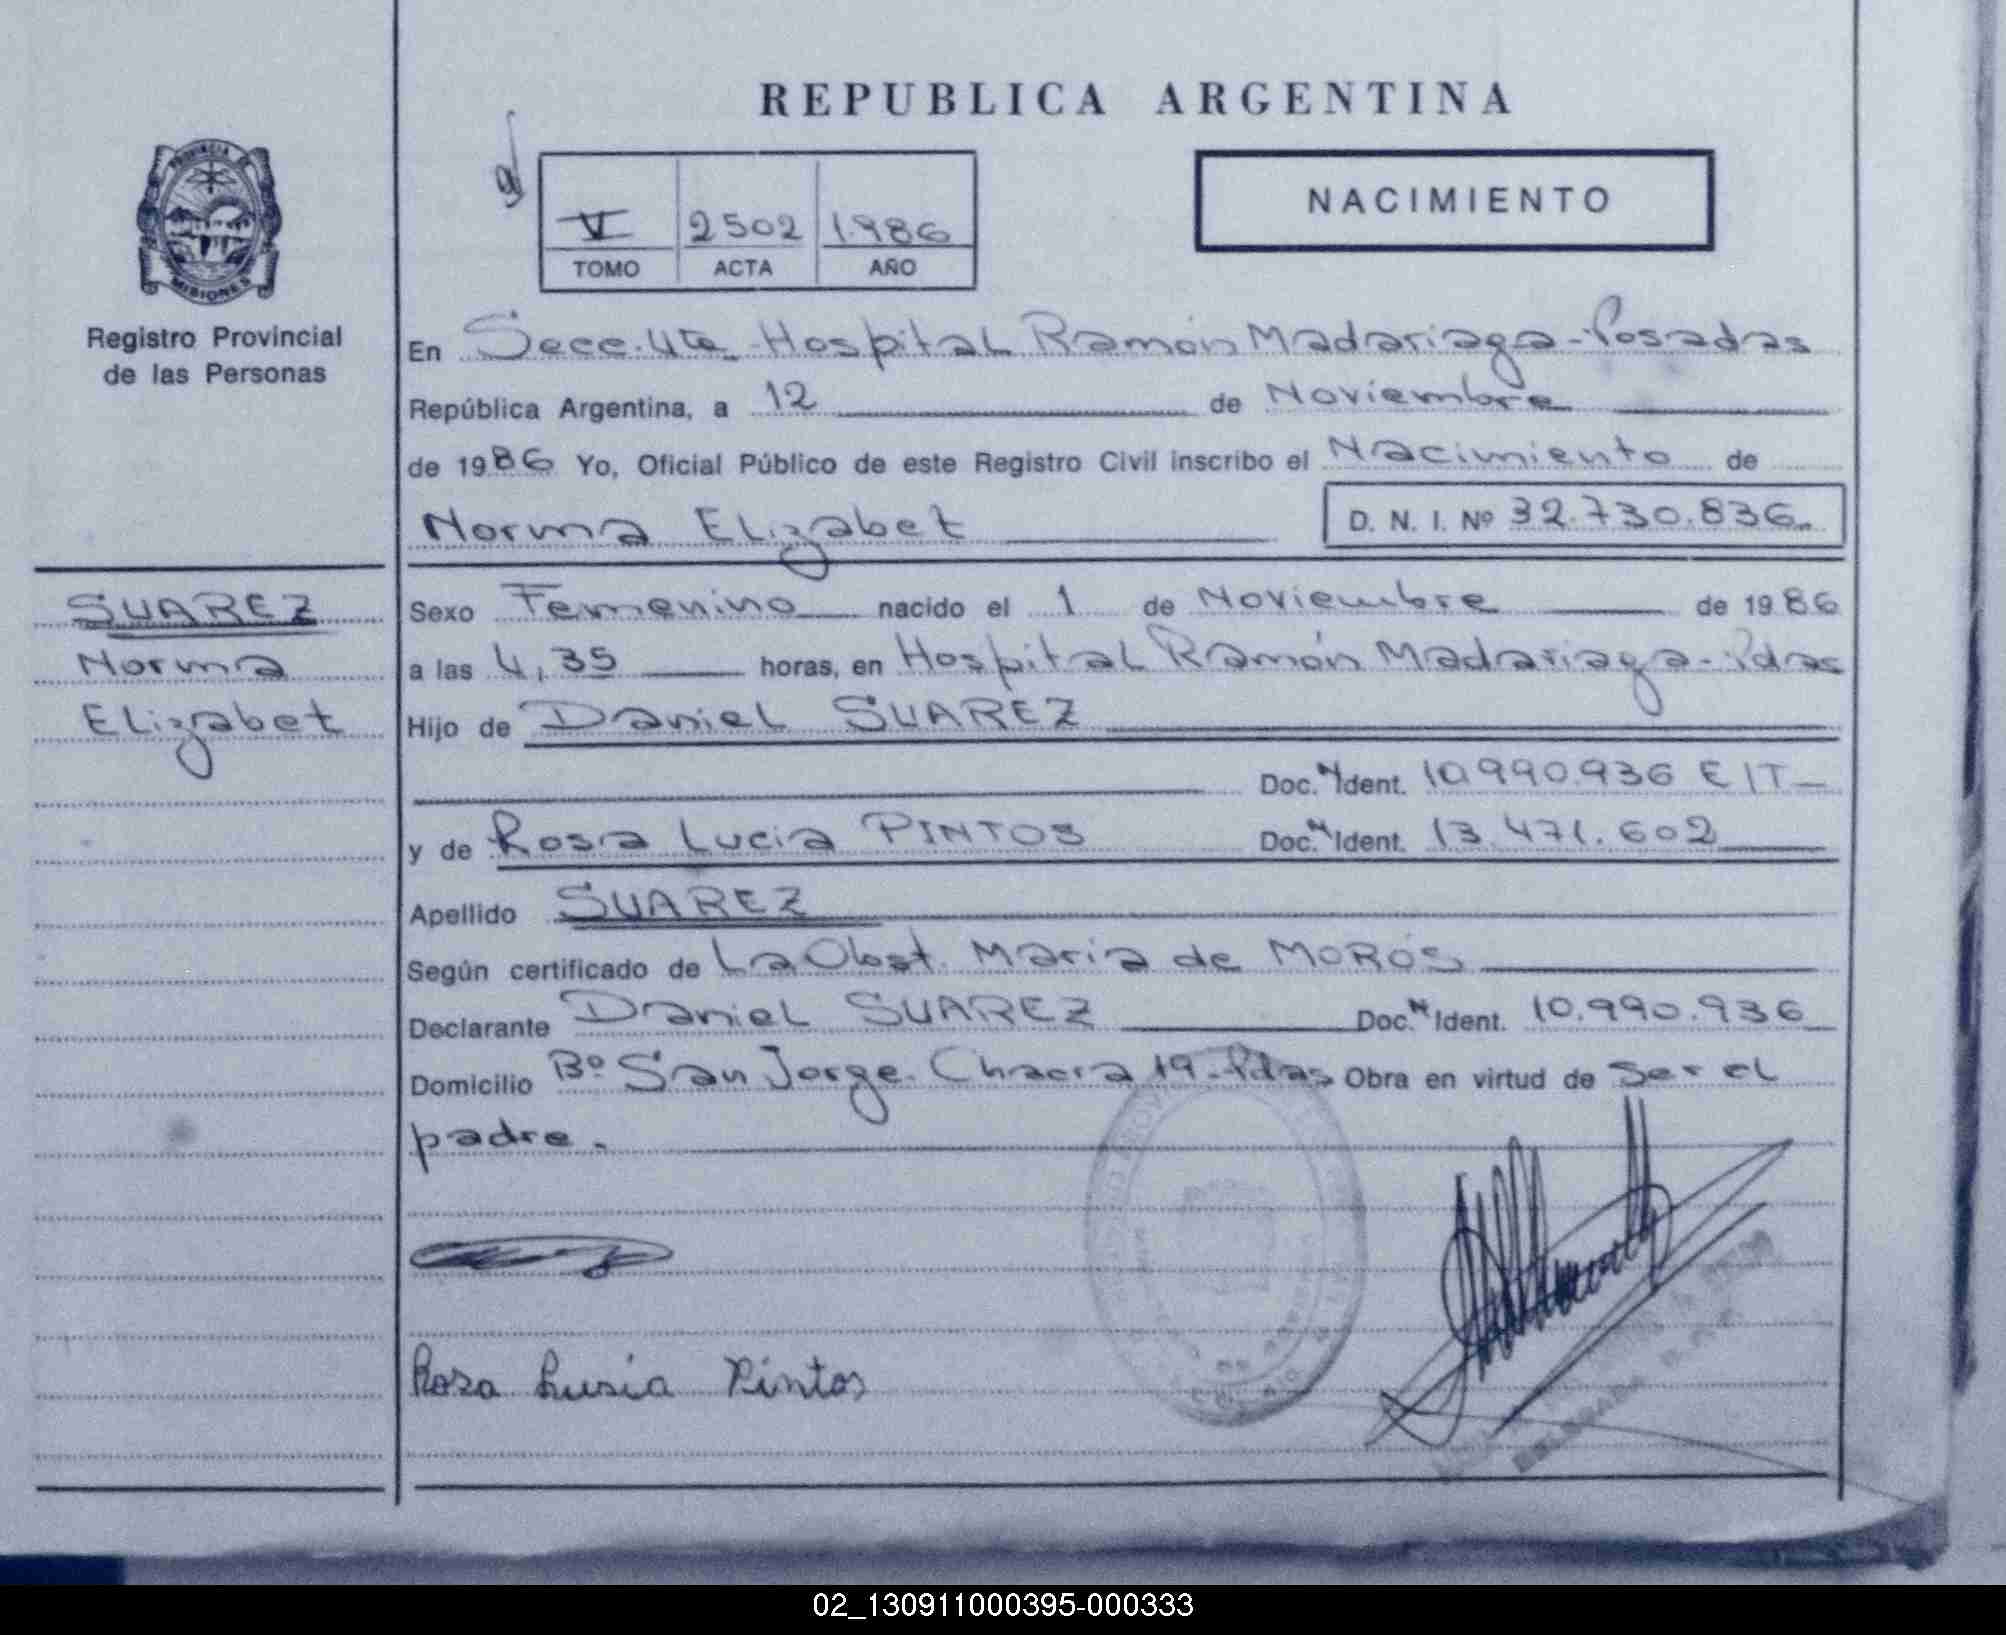 REPUBLICA ARGENTINA
PROVINCIA DE
MISIONES
Registro Provincial
de las Personas
V 2502 1.986
TOMO ACTA AÑO
NACIMIENTO
En Secc. 4ta - Hospital Ramón Madariaga - Posadas
República Argentina, a 12 de Noviembre
de 1986 Yo, Oficial Público de este Registro Civil inscribo el Nacimiento de
Norma Elizabet D. N. I. Nº 32.730.836
SUAREZ
Norma
Elizabet
Sexo Femenino nacido el 1 de Noviembre de 1986
a las 4,35 horas, en Hospital Ramón Madariaga - Pdas
Hijo de Daniel SUAREZ
Doc. Ident. 10.990.936 E IT
y de Rosa Lucia PINTOS Doc. Ident. 13.471.602
Apellido SUAREZ
Según certificado de La Obst. Maria de MOROS
Declarante Daniel SUAREZ Doc. Ident. 10.990.936
Domicilio Bº San Jorge. Chacra 19 - Pdas Obra en virtud de ser el
padre.
Rosa Lusia Pintos
02_130911000395-000333